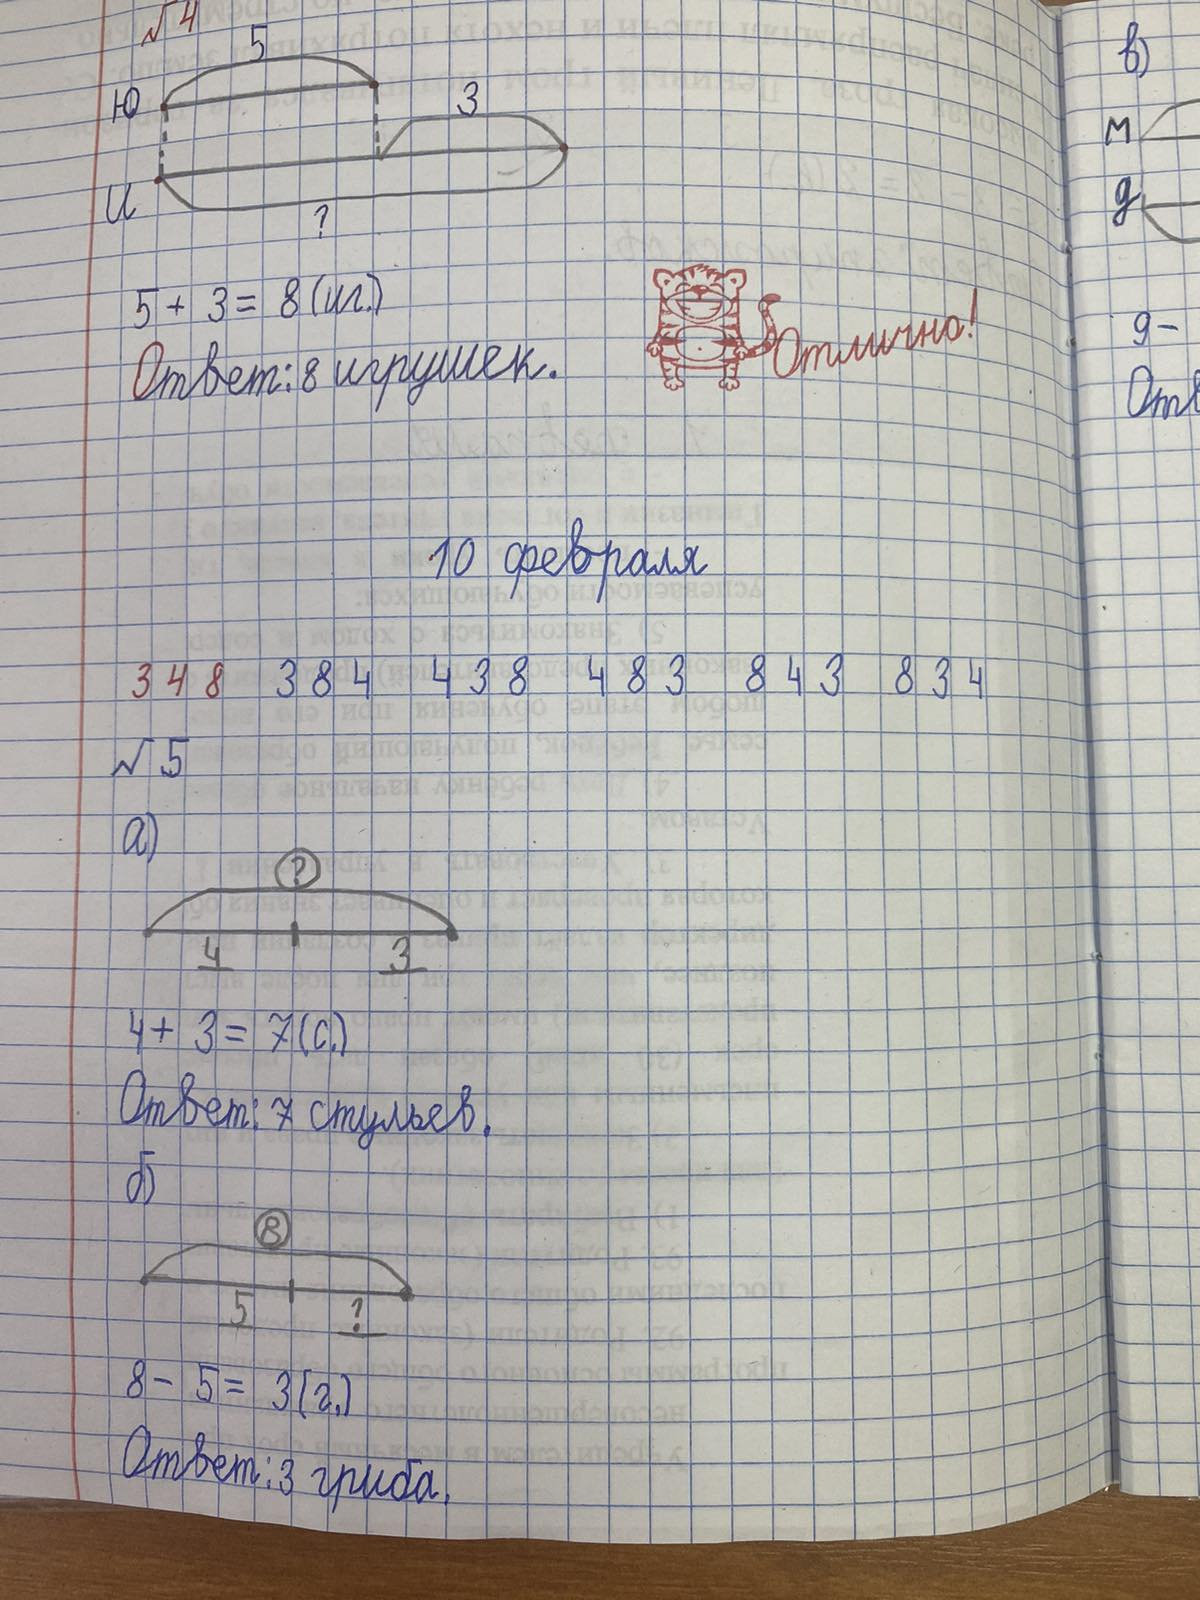 √4
5
Ю
3
И
?
5 + 3 = 8 (иг.)
Ответ: 8 игрушек.
Отлично!
10 февраля
348 384 438 483 843 834
√5
а)
?
4 3
4 + 3 = 7 (с.)
Ответ: 7 стульев.
б)
8
5 ?
8 - 5 = 3 (г.)
Ответ: 3 гриба.
в)
м
д
9 -
Отв